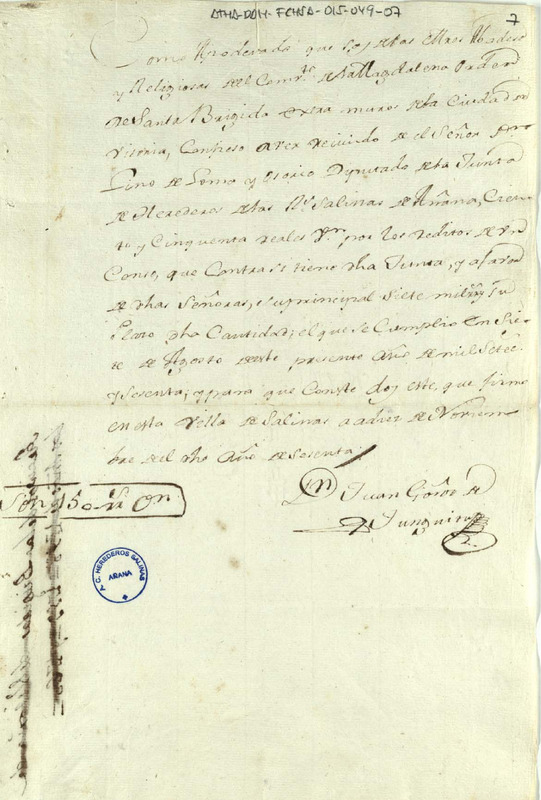 ATHA-DAH-FCHSA-015-049-07
7
Como Apoderado que soy de las Mres Abadesa
y Religiosas del Combto de la Magdalena Orden
de Santa Brigida extra muros de la Ciudad de
Vitoria, Confieso aver recivido de el Señor
Lino de Pomo y Osorio Diputado de la Junta
de Herederos de las Rs Salinas de Añana, Cien
to y Cinquenta reales Vn por los reditos de Un
Censo, que Contra si tiene dha Junta, y a favor
de dhas Señoras, su principal siete mil y
plazo dha Cantidad; el que se Cumplio en Sie
te de Agosto de este presente Año de mil Setec.
y Sesenta; y para que Conste doy este, que firmo
en esta Villa de Salinas a diez de Noviem
bre del dho Año de Sesenta
Son 150 Rs Vn
Dn Juan de
Junguitu
A.C. HEREDEROS SALINAS
AÑANA